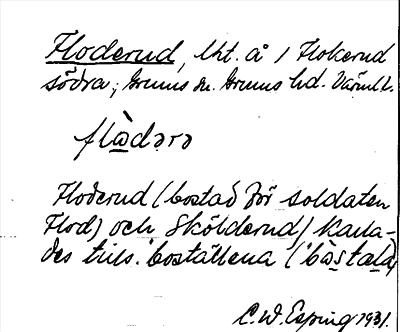 Floderud, lht. å 1 Flokerud
södra; Grums sn. Grums hd. Värml.
flädərə
Floderud (bostad för soldaten
Flod) och Skölderud) kalla-
des tills. boställena (båstala)
C. W. Esping 1931.